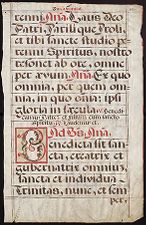 renni. Ana. Laus Deo
Patri, Parilique Proli,
et tibi sancte studio pe
renni Spiritus, nostro
resonet ab ore, omne
per ævum. Ana. Ex quo
omnia, per quem om
nia, in quo omnia: ipsi
gloria in sæcula.
Ad Bñs. Ana.
Benedicta sit san
cta, creatrix et
gubernatrix omnium
sancta et individua
Trinitas, nunc, et sem
per,